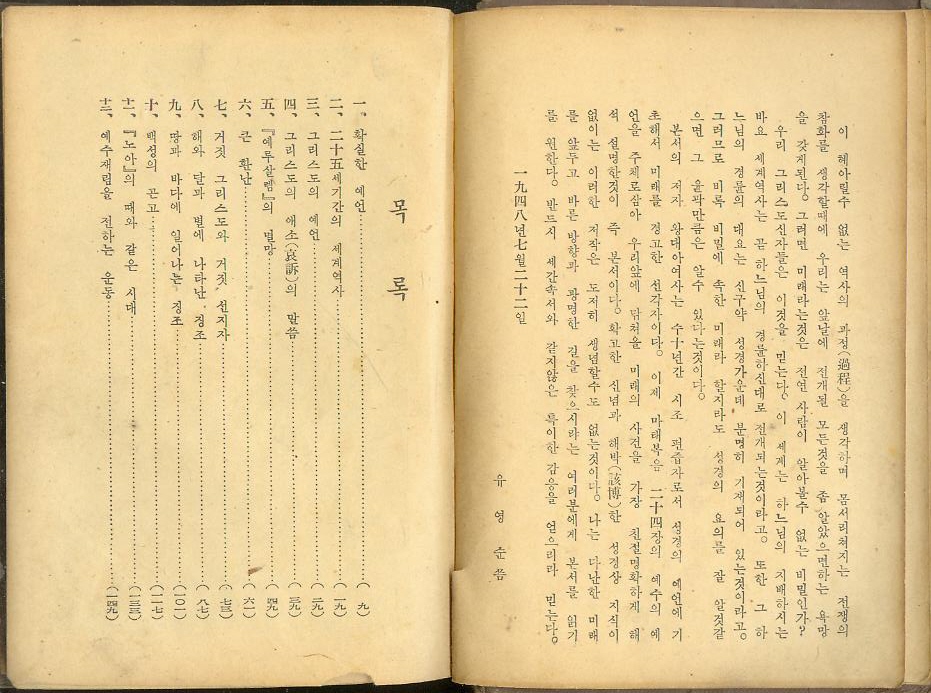 이 헤아릴수 없는 역사의 과정(過程)을 생각하며 몸서리처지는 전쟁의
참화를 생각할때에 우리는 앞날에 전개될 모든것을 좀 알았으면하는 욕망
을 갖게된다。그러면 미래라는것은 전연 사람이 알아볼수 없는 비밀인가?
우리 그리스도신자들은 이것을 믿는다。이 세계는 하느님의 지배하시는
바요 세계역사는 곧 하느님의 경륜하신대로 전개되는것이라고。또한 그 하
느님의 경륜의 대요는 신구약 성경가운데 분명히 기재되어 있는것이라고。
그러므로 비록 비밀에 속한 미래라 할지라도 성경의 요의를 잘 알것같
으면 그 윤곽만큼은 알수 있다는것이다。
본서의 저자 왕대아여사는 수十년간 시조 편즙자로서 성경의 예언에 기
초해서 미래를 경고한 선각자이다。이제 마태복음 二十四장의 예수의 예
언을 주제로삼아 우리앞에 닥쳐올 미래의 사건을 가장 친절명확하게 해
석 설명한것이 즉 본서이다。확고한 신념과 해박(該博)한 성경상 지식이
없이는 이러한 저작은 도저히 생념할수도 없는것이다。나는 다난한 미래
를 앞두고 바른 방향과 광명한 길을 찾으시랴는 여러분에게 본서를 읽기
를 원한다。반드시 세간속서와 같지않은 특이한 감응을 얻으리라 믿는다。
一九四八년七월二十二일
유 영 순 씀
목 록
一、확실한 예언 (九)
二、二十五세기간의 세계역사 (一九)
三、그리스도의 예언 (二九)
四、그리스도의 애소(哀訴)의 말씀 (三九)
五、『예루살렘』의 멸망 (四九)
六、큰 환난 (六一)
七、거짓 그리스도와 거짓 선지자 (七三)
八、해와 달과 별에 나타난 징조 (八七)
九、땅과 바다에 일어나는 징조 (一〇一)
十、백성의 곤고 (一一七)
十一、『노아』의 때와 같은 시대 (一三三)
十二、예수재림을 전하는 운동 (一四九)